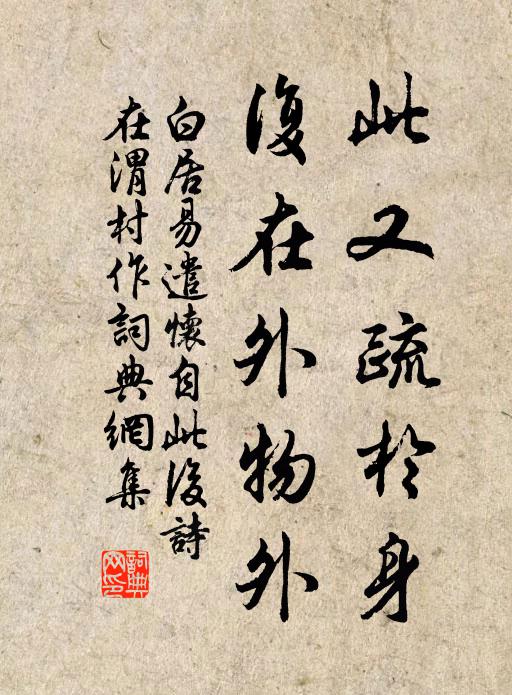 此又疏於身
復在外物外
白居易遣懷自此後詩
在渭村作詞典網集
詞典网印